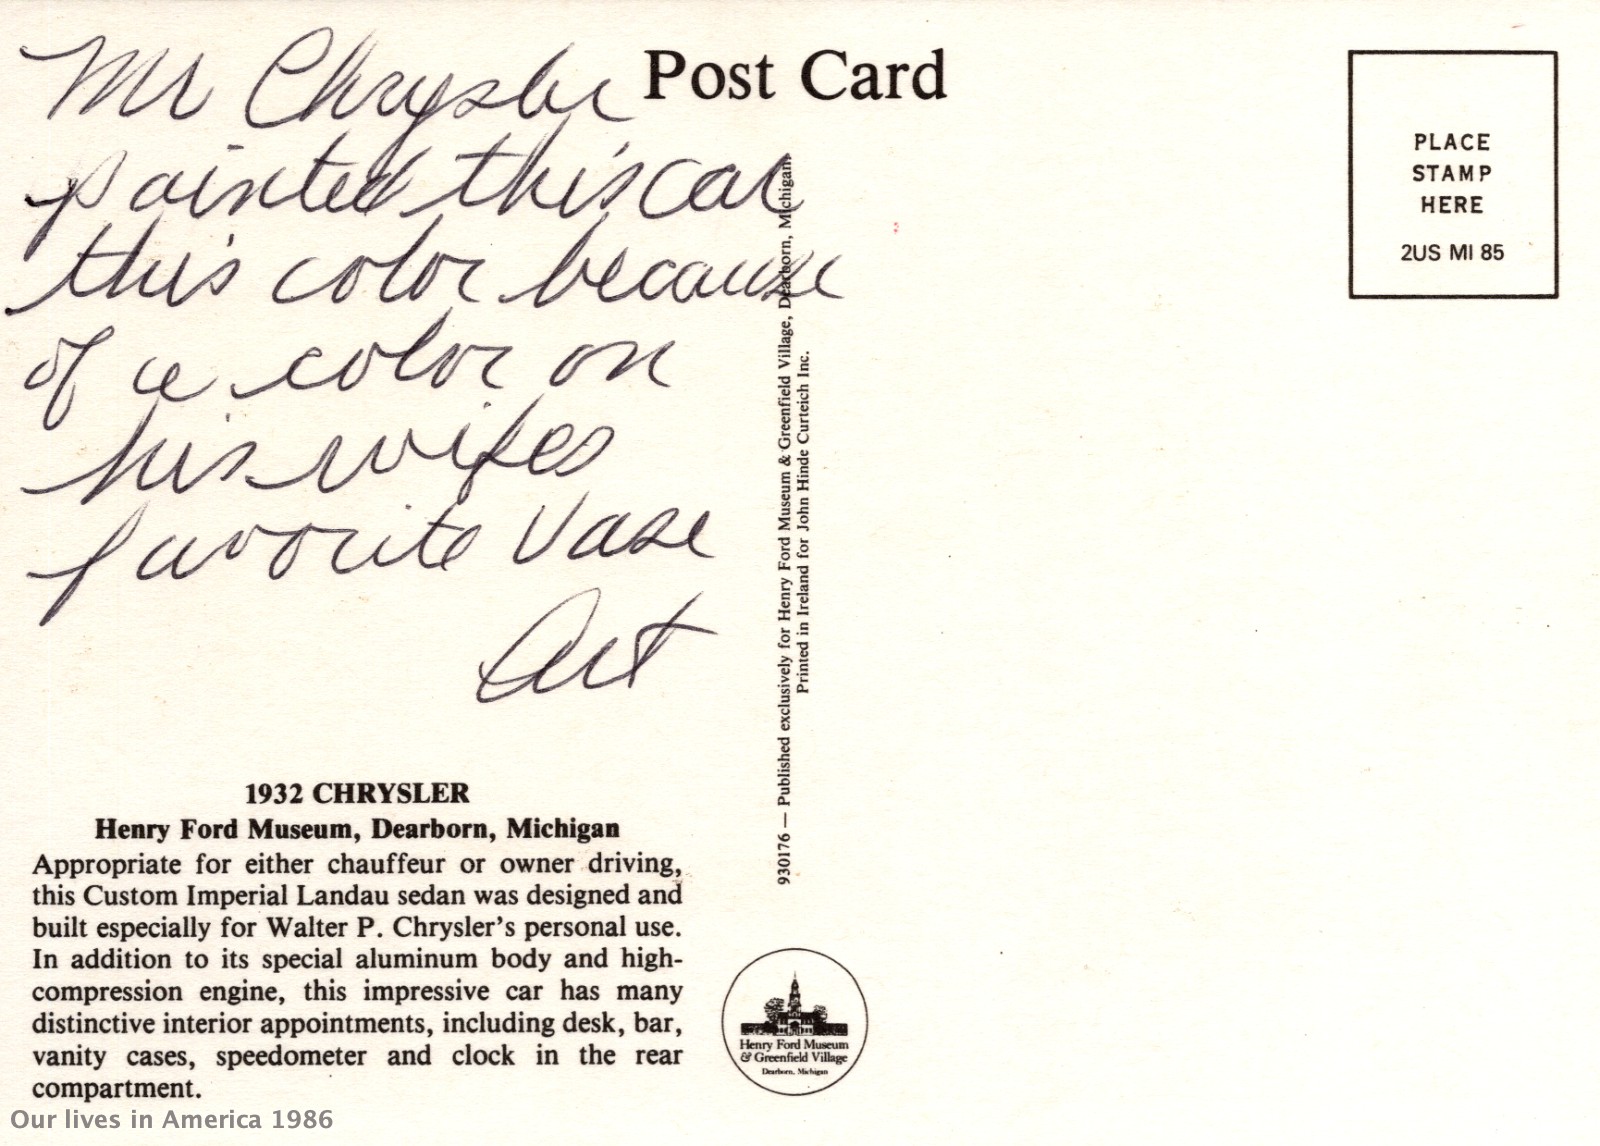 Mr Chrysler
painted this car
this color because
of a color on
his wifes
favorite Vase
Art
Post Card
PLACE
STAMP
HERE
2US MI 85
930176 — Published exclusively for Henry Ford Museum & Greenfield Village, Dearborn, Michigan.
Printed in Ireland for John Hinde Curteich Inc.
1932 CHRYSLER
Henry Ford Museum, Dearborn, Michigan
Appropriate for either chauffeur or owner driving,
this Custom Imperial Landau sedan was designed and
built especially for Walter P. Chrysler's personal use.
In addition to its special aluminum body and high-
compression engine, this impressive car has many
distinctive interior appointments, including desk, bar,
vanity cases, speedometer and clock in the rear
compartment.
Henry Ford Museum
& Greenfield Village
Dearborn, Michigan
Our lives in America 1986